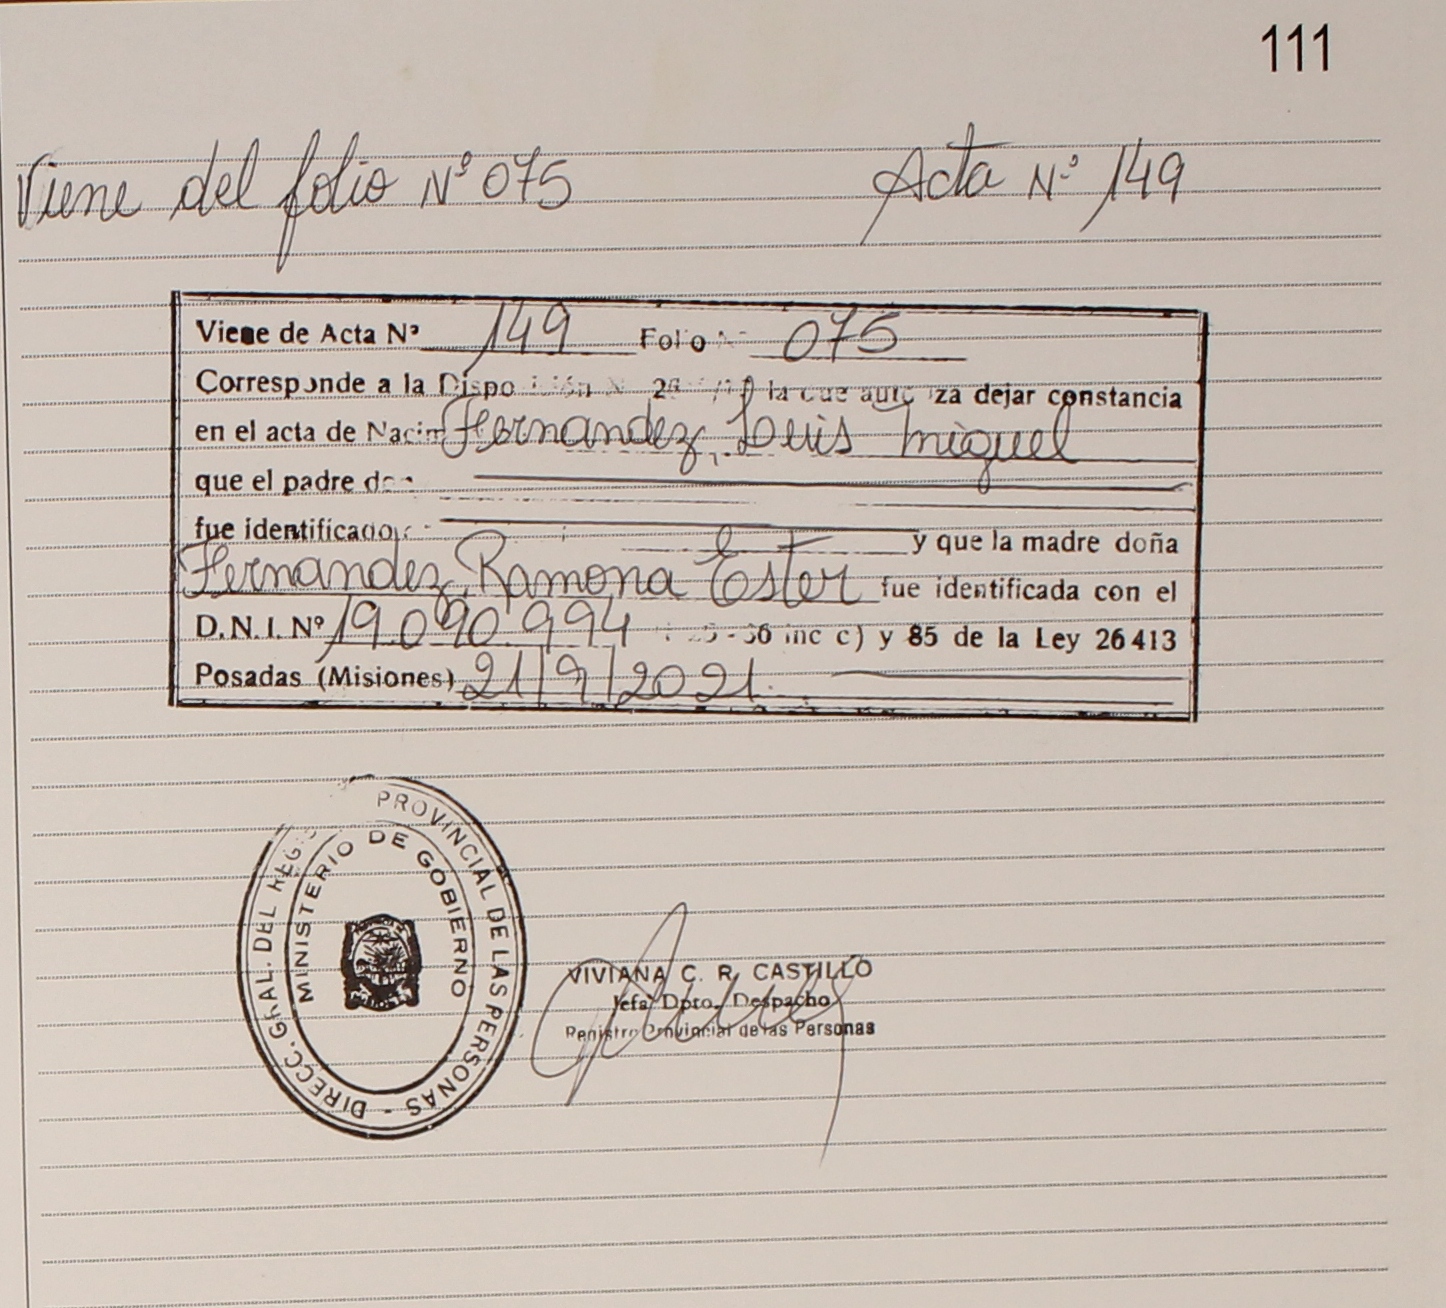 111
Viene del folio Nº 075 Acta Nº 149
Viene de Acta Nº 149 Folio 075
Corresponde a la la que dejar constancia
en el acta de Fernandez, Luis Miguel
que el padre
fue identificado
y que la madre doña
Fernandez, Ramona Ester fue identificada con el
D.N.I. Nº 19.090.994 inc c) y 85 de la Ley 26413
Posadas (Misiones) 21/9/2021.
DIRECC. GRAL. DEL PROVINCIAL DE LAS PERSONAS -
MINISTERIO DE GOBIERNO
VIVIANA C. R. CASTILLO
Jefa Dpto. Despacho
Registro Provincial de las Personas